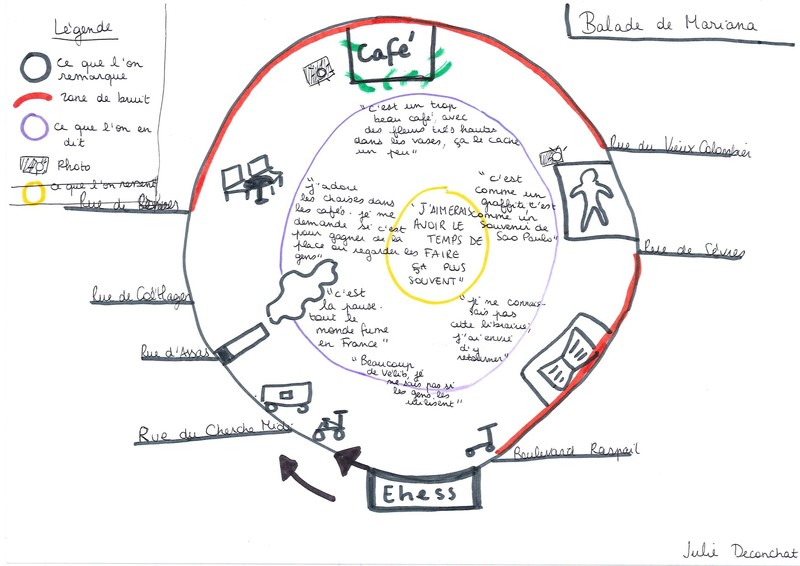 Légende
Ce que l'on
remarque
Zone de bruit
Ce que l'on en
dit
Photo
Ce que l'on ressent
Balade de Mariana
Café
"C'est un trop
beau café, avec
des fleurs très hautes
dans les vases, ça le cache
un peu"
Rue du Vieux Colombier
Rue de Rennes
"J'adore
les chaises dans
les cafés. je me
demande si c'est
pour gagner de la
place ou regarder les
gens"
"J'AIMERAIS
AVOIR LE
TEMPS DE
FAIRE
ÇA PLUS
SOUVENT"
"c'est
comme un
graffiti c'est
comme un
souvenir de
Sao Paulo"
Rue de Sèvres
Rue d'Assas
"c'est
la pause.
tout le
monde fume
en France"
"je ne connais-
sais pas
cette librairie,
j'ai envie
d'y
retourner"
"Beaucoup
de Vélib, je
ne sais pas si
les gens les
utilisent"
Rue du Cherche Midi
Boulevard Raspail
Ehess
Julie Deconchat